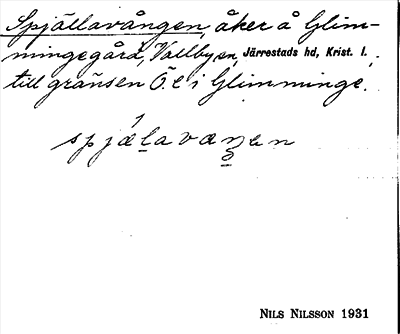 Spjällavången, åker å Glim-
mingegård, Vallby sn, Järrestads hd, Krist. l.,
till gränsen Ö. e i Glimminge.
spjælavaŋen
NILS NILSSON 1931